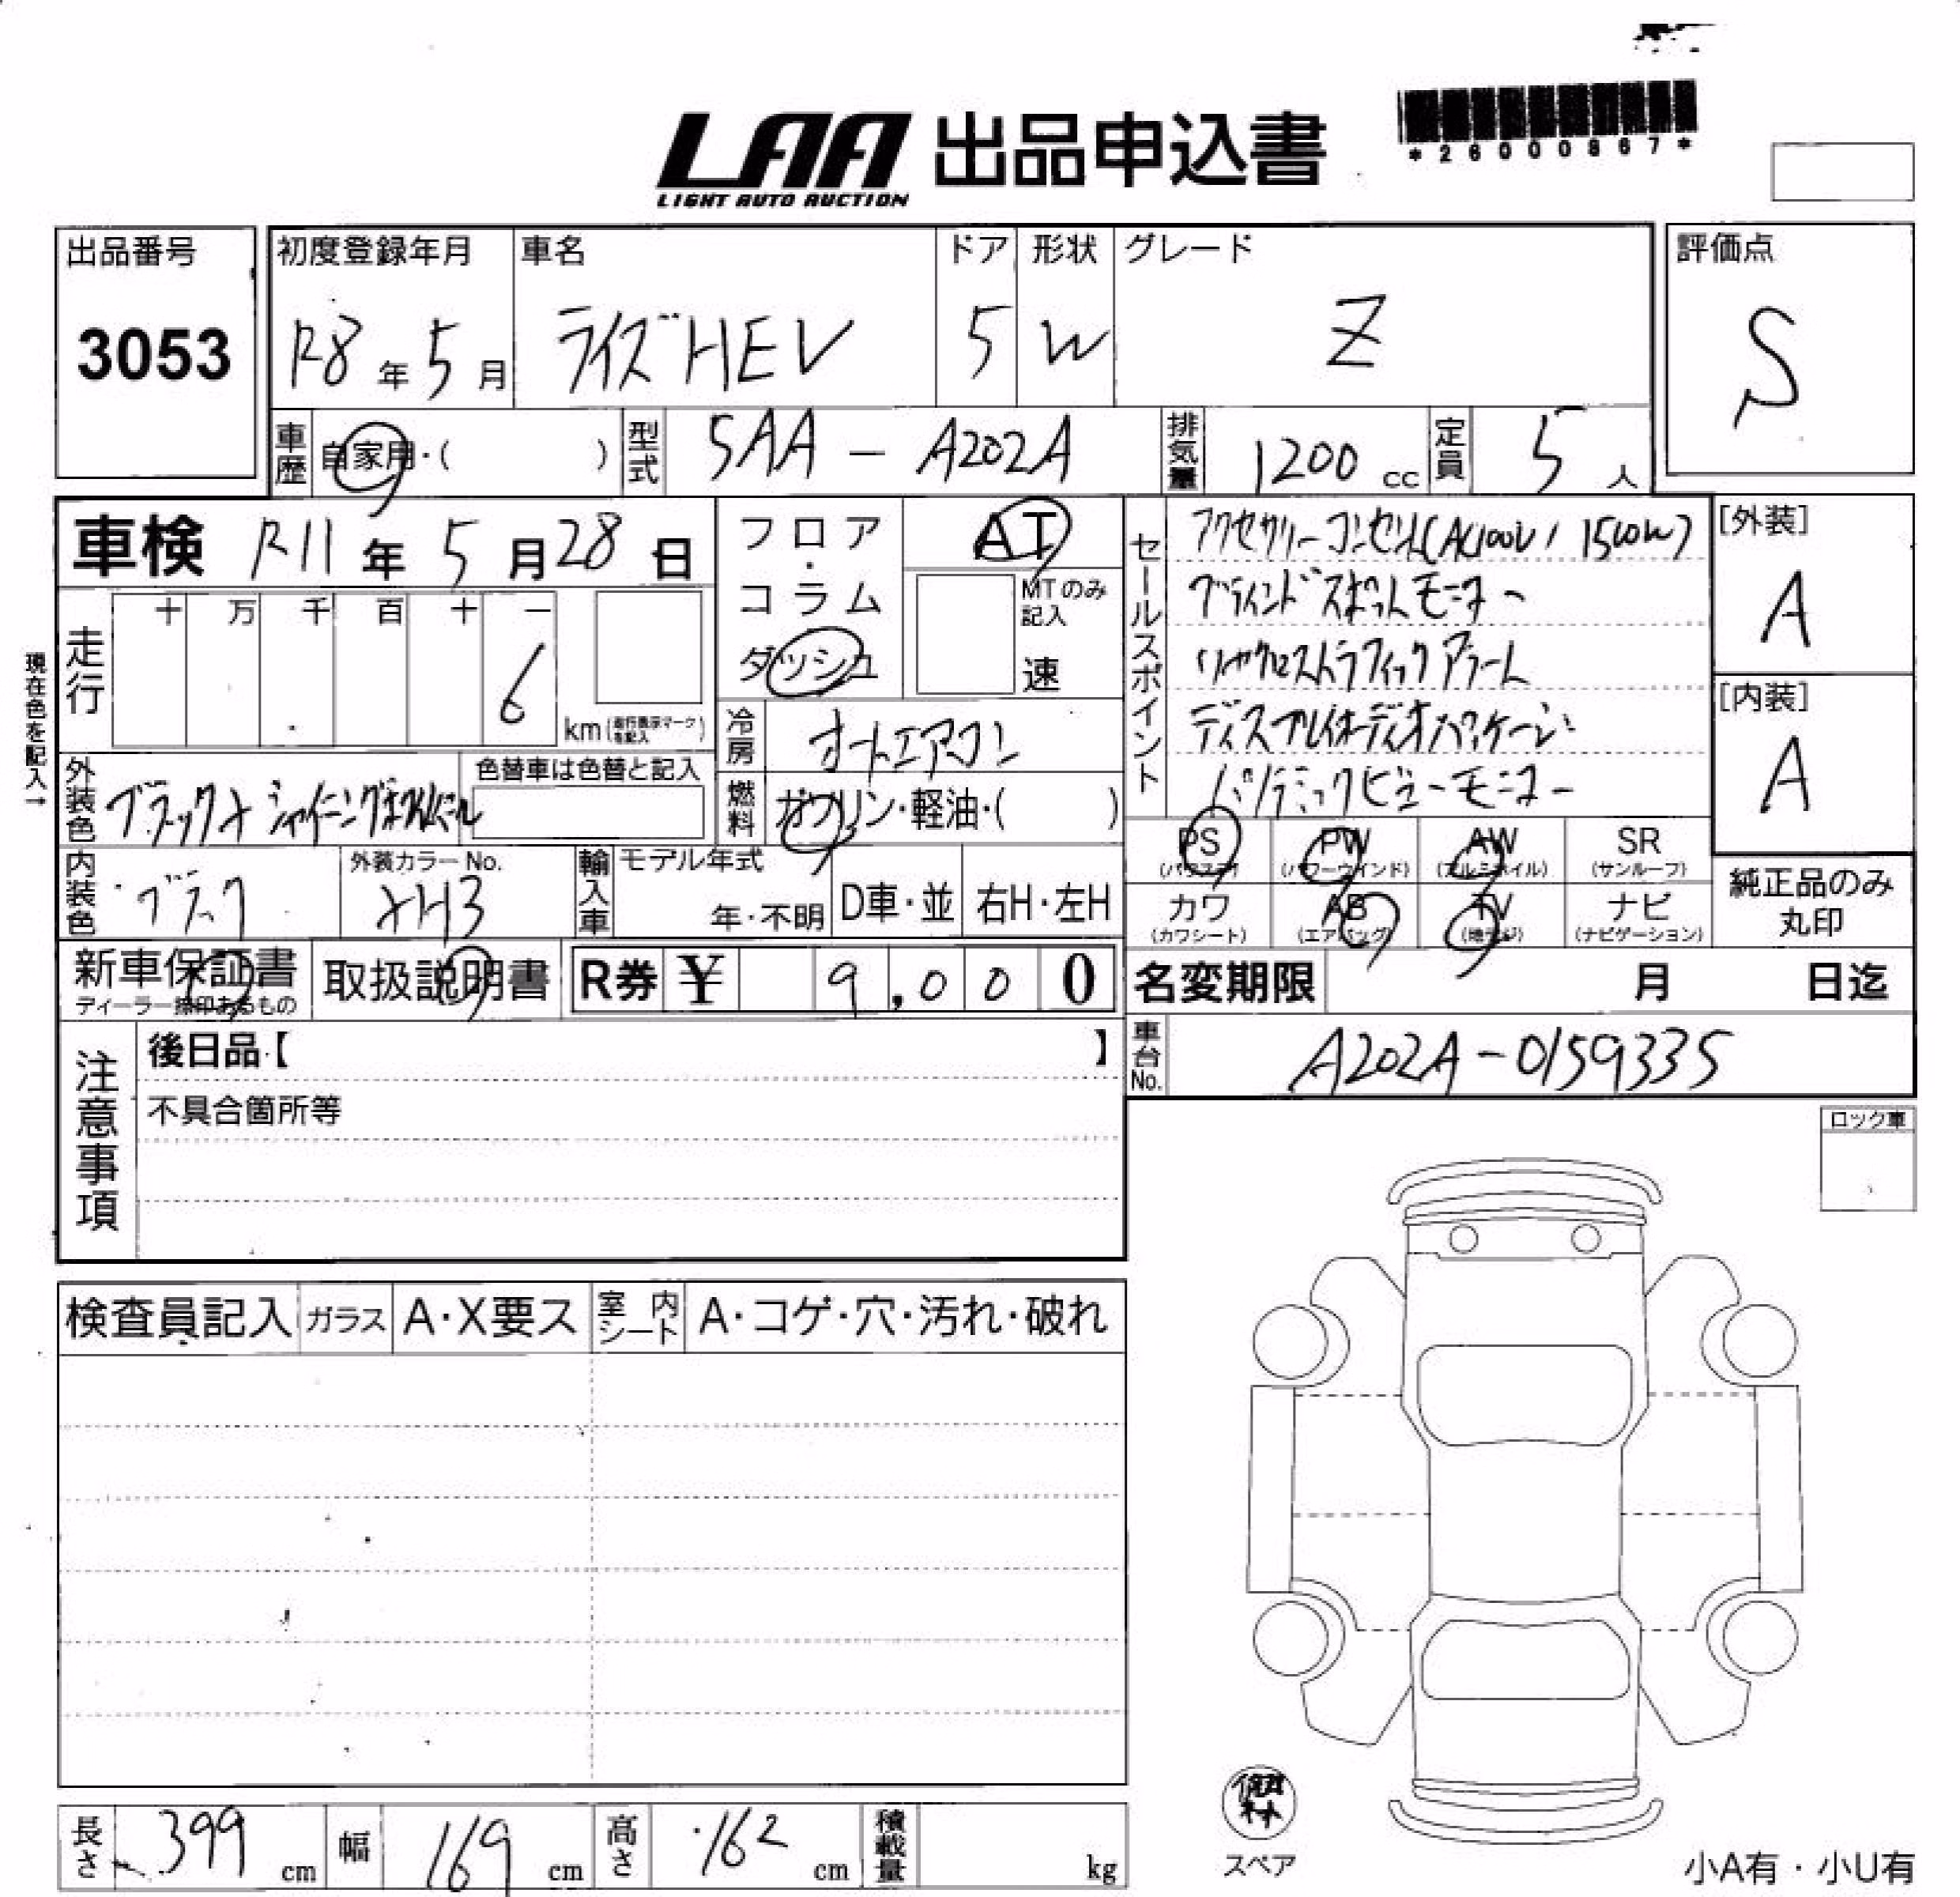 LAA 出品申込書
LIGHT AUTO AUCTION
*26000867*
出品番号
3053
初度登録年月
R8年5月
車名
ライズHEV
ドア
5
形状
W
グレード
Z
評価点
S
車歴
自家用・( )
型式
5AA - A202A
排気量
1200 cc
定員
5人
車検 R11年5月28日
現在色を記入→
走行
十 万 千 百 十 一
6
km(走行表示マークを記入)
フロア・コラム
ダッシュ
AT
MTのみ記入
速
冷房
オートエアコン
燃料
ガソリン・軽油・( )
セールスポイント
アクセサリーコンセント(AC100V/1500W)
ブラインドスポットモニター
リヤクロストラフィックアラーム
ディスプレイオーディオパッケージ
パノラミックビューモニター
[外装]
A
[内装]
A
外装色
ブラック×シャイニングホワイトパール
色替車は色替と記入
内装色
ブラック
外装カラーNo.
XH3
輸入車
モデル年式
年・不明
D車・並
右H・左H
PS (パワステ)
PW (パワーウインド)
AW (アルミホイル)
SR (サンルーフ)
カワ (カワシート)
AB (エアバッグ)
TV (地デジ)
ナビ (ナビゲーション)
純正品のみ丸印
新車保証書
ディーラー捺印あるもの
取扱説明書
R券 ¥ 9,000
名変期限 月 日迄
車台No.
A202A-0159335
注意事項
後日品【 】
不具合箇所等
ロック車
検査員記入
ガラス
A・X要ス
室内シート
A・コゲ・穴・汚れ・破れ
長さ 399 cm
幅 169 cm
高さ 162 cm
積載量 kg
スペア
小A有・小U有